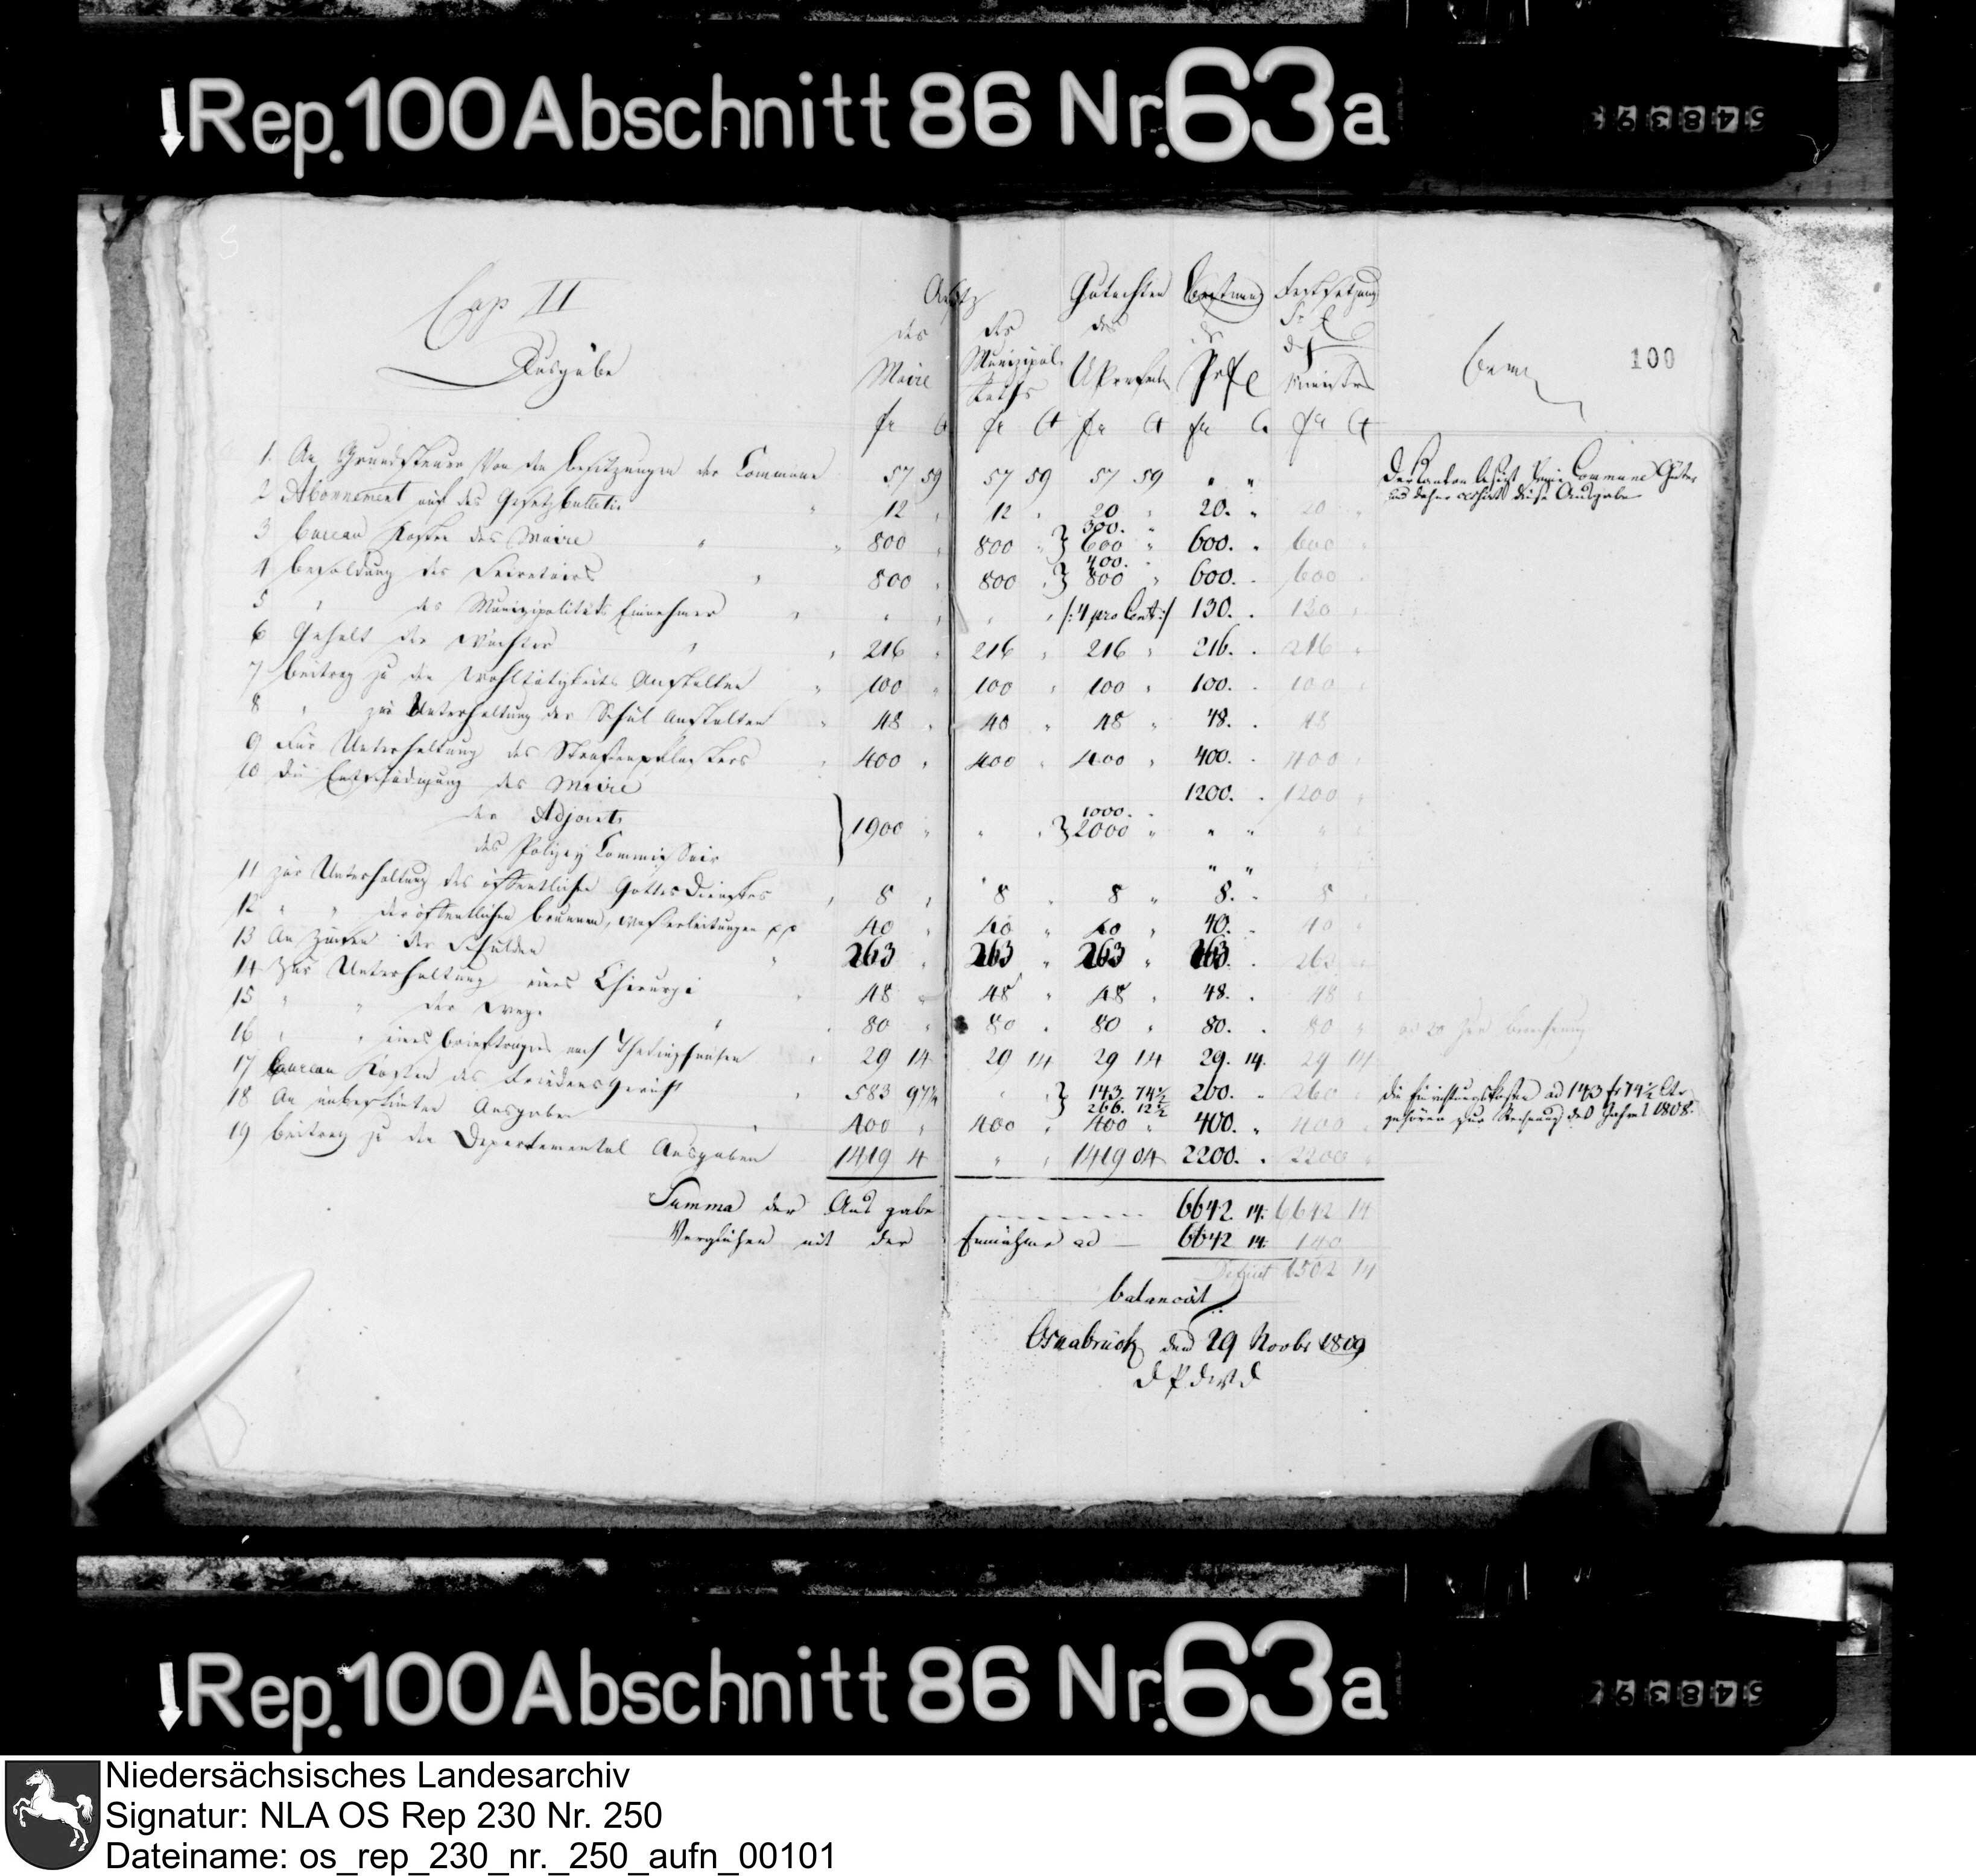 Rep. 100 Abschnitt 86 Nr. 63a
54839
Cap II
Ausgabe
Ansatz Gutachten Bestimmung Festsetzung
des des des des
Maire Munizipal Raths UPraefecten Präf Ministers
Bemerk
100
fr Ct fr Ct fr Ct fr Ct fr Ct
1. An Grundsteuer Von den Besitzungen der Commune 57 59 57 59 57 59 " "
Der Canton besitzt keine Commune Güter
und daher cessirt diese Ausgabe
2 Abonnement auf des Gesetzbulletin " 12 " 12 " 20 " 20. " 20 "
3 Bureau Kosten des Maire " " 800 " 800 " } 300. " 600 " 600. " 600 "
4 Besoldung des Secretairs " 800 " 800 " } 400. 800 " 600. " 600 "
5 " des Munizipalitäts Einnehmer " " " " " /:4 pro Cent:/ 130. " 130 "
6 Gehalt der Wächter " " 216 " 216 " 216 " 216. " 216 "
7 Beitrag zu den Wohltätigkeits Anstalten " 100 " 100 " 100 " 100. " 100 "
8 " zur Unterhaltung der Schul Anstalten " 48 " 48 " 48 " 48. " 48
9 Für Unterhaltung des Straßenpflasters " 400 " 400 " 400 " 400. " 400 "
10 Die Entschädigung des Maire 1200. " 1200 "
der Adjoints } 1900 " " " } 1000. " 2000 " " " " "
des Polizey Commissair " "
11 zur Unterhaltung des öffentlichen Gottes Dienstes " 8 " 8 " 8 " 8. " 8
12 " " der öffentlichen Brunnen, Wasserleitungen pp 40 " 40 " 40 " 40. " 40 "
13 An Zinsen der Schulden " 263 " 263 " 263 " 263. " 263 "
14 Zur Unterhaltung eines Chirurgi " 48 " 48 " 48 " 48. " 48 "
15 " " der Wege " " 80 " 80 " 80 " 80. " 80 "
16 " " eines Briefträgers nach Thedinghausen " 29 14 29 14 29 14 29. 14. 29 14
17 Bureau Kosten des Friedensgericht " 583 97½ " " } 143. 74½ 266. 12½ 260. " 260 "
die Einrichtungskosten ad 143 fr 74½ Ctr
gehören zur Rechnung des Jahres 1808.
18 An unbestimten Ausgaben " 400 " 400 " 400 " 400. " 400 "
19 Beitrag zu den Departemental Ausgaben 1419 4 " " 1419 04 2200. " 2200 "
Summa der Ausgabe 6642 14. 6642 14
Verglichen mit der Einnahme ad — 6642 14. 140
Deficit 6502 14
balancirt
Osnabrück den 29 Novbr 1809
D P d W D
Rep. 100 Abschnitt 86 Nr. 63a
54839
Niedersächsisches Landesarchiv
Signatur: NLA OS Rep 230 Nr. 250
Dateiname: os_rep_230_nr._250_aufn_00101